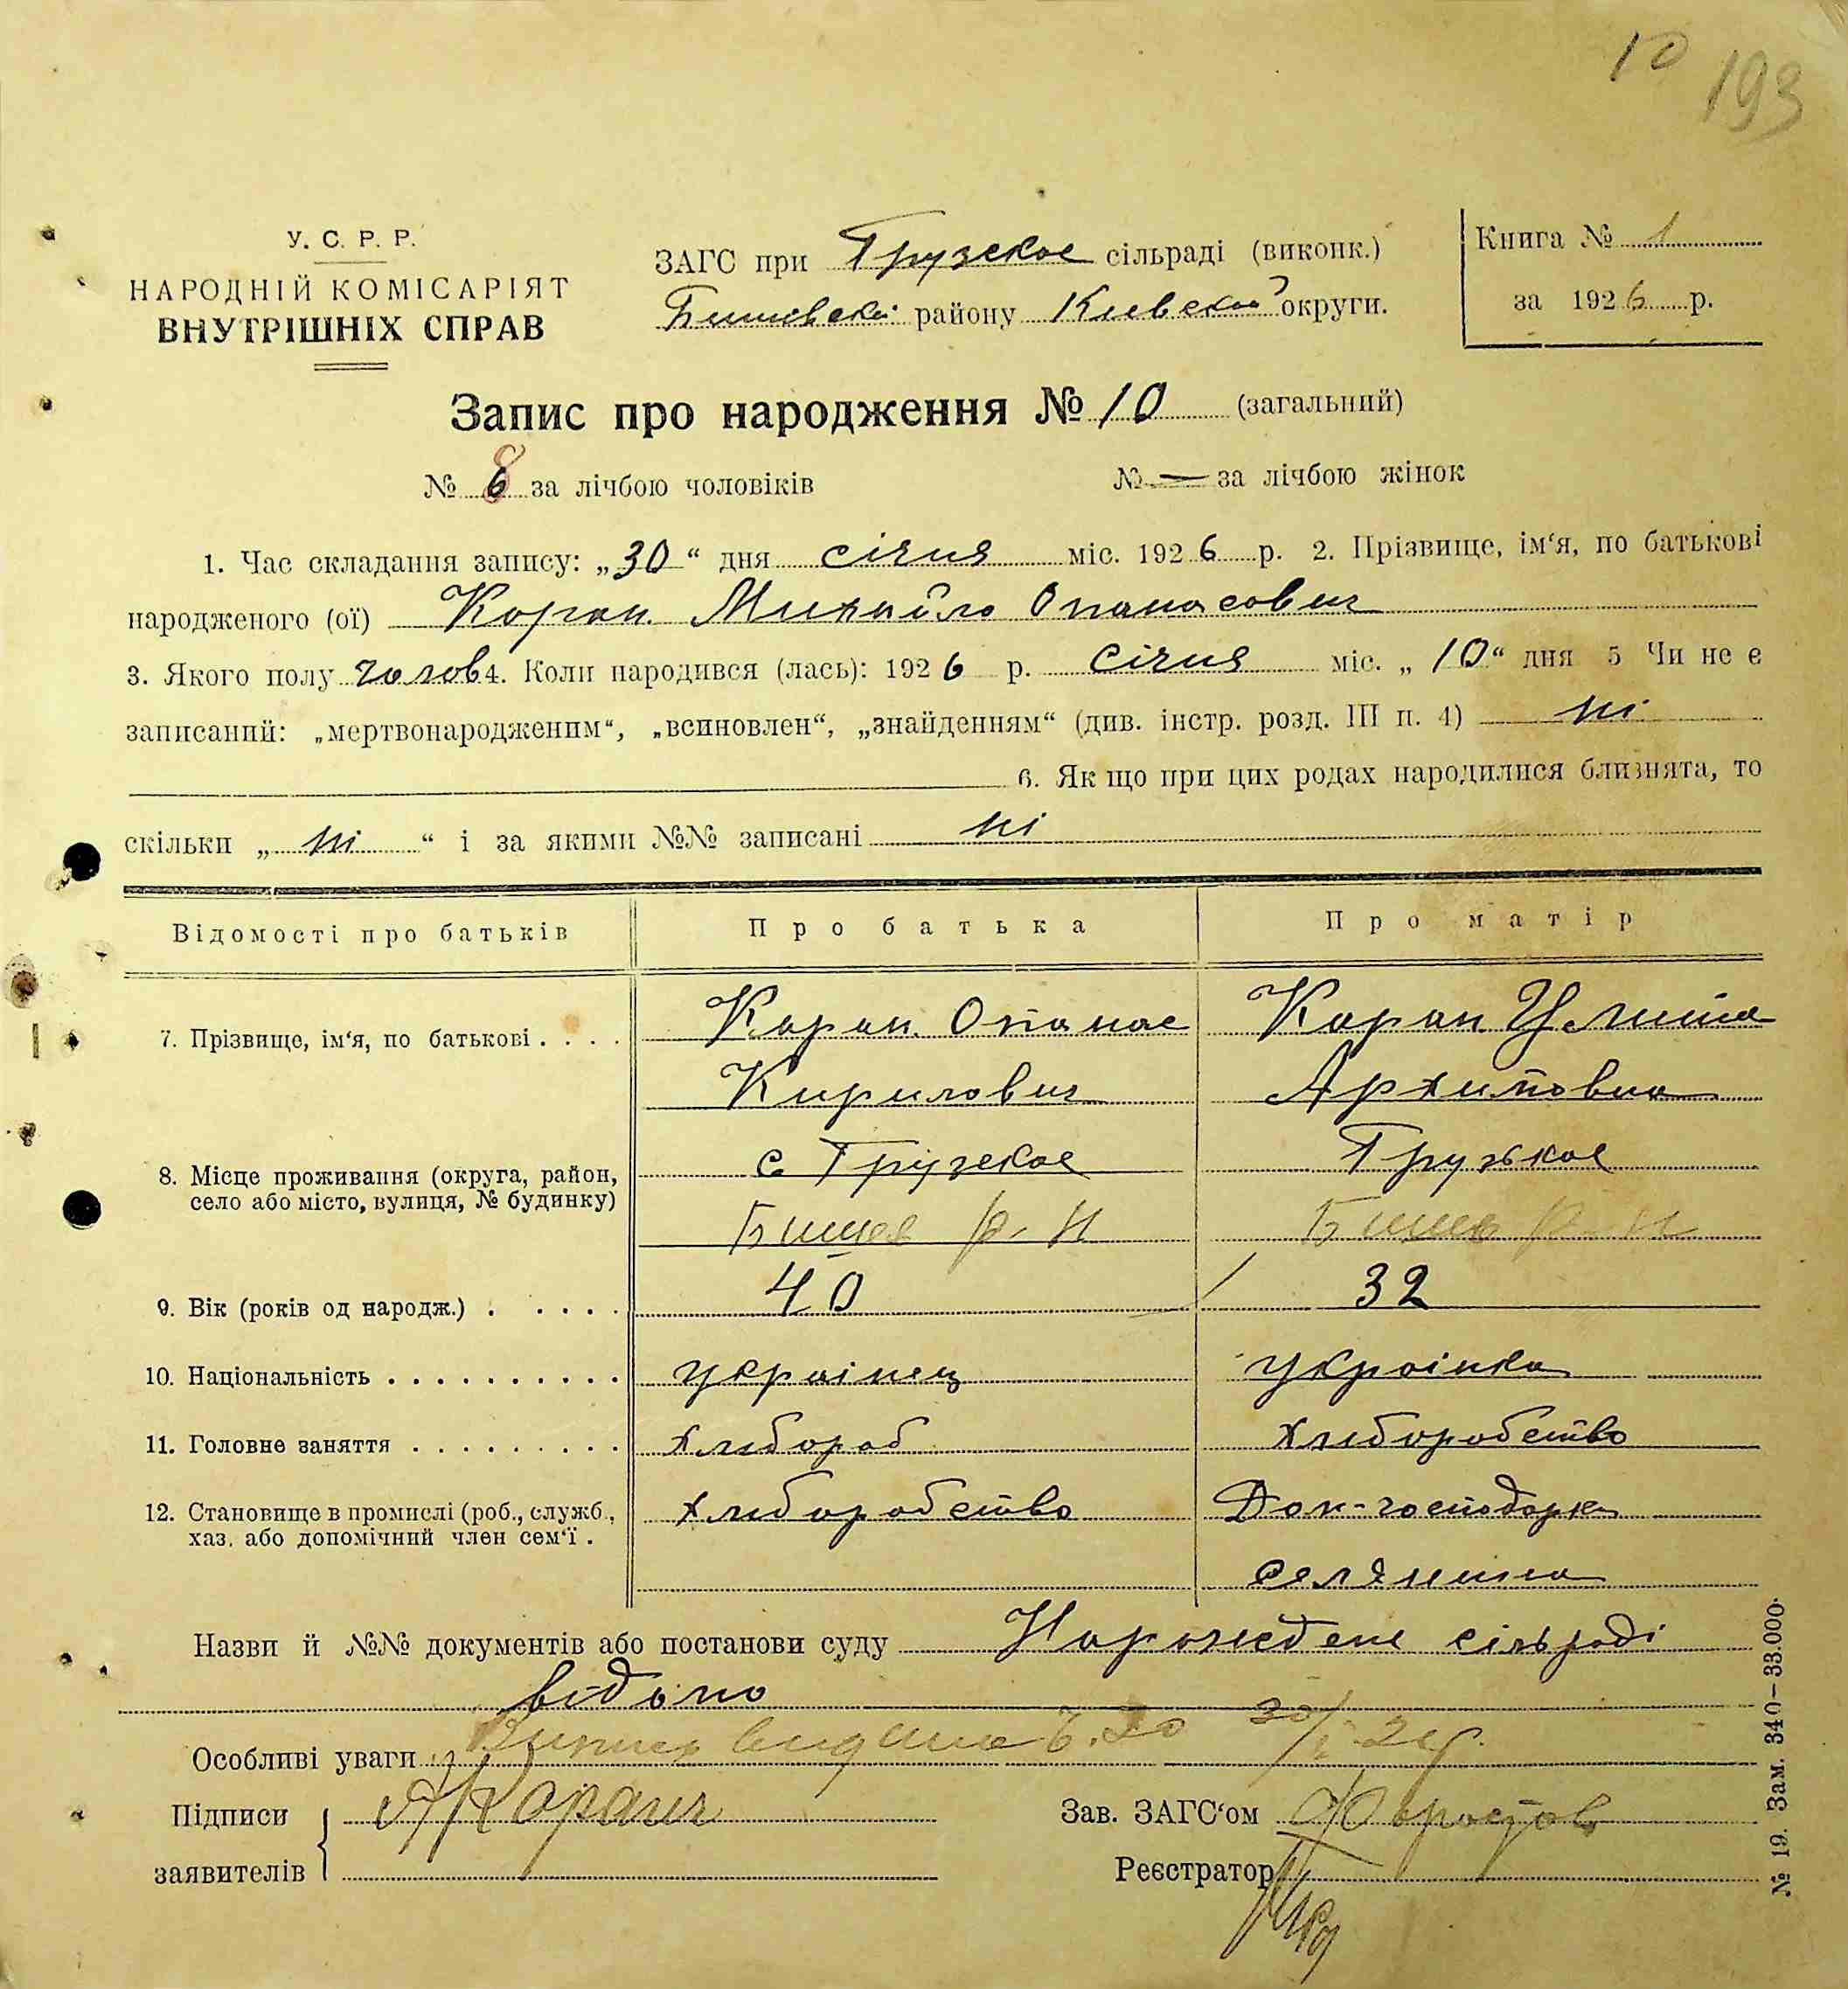 10
193
У. С. Р. Р.
НАРОДНІЙ КОМІСАРІЯТ
ВНУТРІШНІХ СПРАВ
ЗАГС при Грузское сільраді (виконк.)
Бишівскі району Киевской округи.
Книга № 1
за 1926 р.
Запис про народження № 10 (загальний)
№ 8 за лічбою чоловіків № — за лічбою жінок
1. Час складання запису: „30“ дня січня міс. 1926 р. 2. Прізвище, ім‘я, по батькові
народженого (ої) Коран Михайло Опанасович
3. Якого полу чолов 4. Коли народився (лась): 1926 р. січня міс. „10“ дня 5 Чи не є
записаний: „мертвонародженим“, „всиновлен“, „знайденням“ (див. інстр. розд. III п. 4) ні
6. Як що при цих родах народилися близнята, то
скільки „ні“ і за якими №№ записані ні
Відомості про батьків Про батька Про матір
7. Прізвище, ім‘я, по батькові . . . . Коран Опанас Коран
Кирилович Архиповна
8. Місце проживання (округа, район, с Грузское Грузское
село або місто, вулиця, № будинку) Бишев р-н Бишев р-н
9. Вік (років од народж.) . . . . . 40 32
10. Національність . . . . . . . . . . українец українка
11. Головне заняття . . . . . . . . . хлибороб хлиборобство
12. Становище в промислі (роб., служб., хлиборобство Дом-господарка
хаз. або допомічний член сем‘ї . селянина
Назви й №№ документів або постанови суду Нарожденє сільраді
відомо
Особливі уваги Выпись выдана 30/I-26р.
Підписи Зав. ЗАГС‘ом
заявителів Реєстратор
№ 19. Зам. 340—33.000.